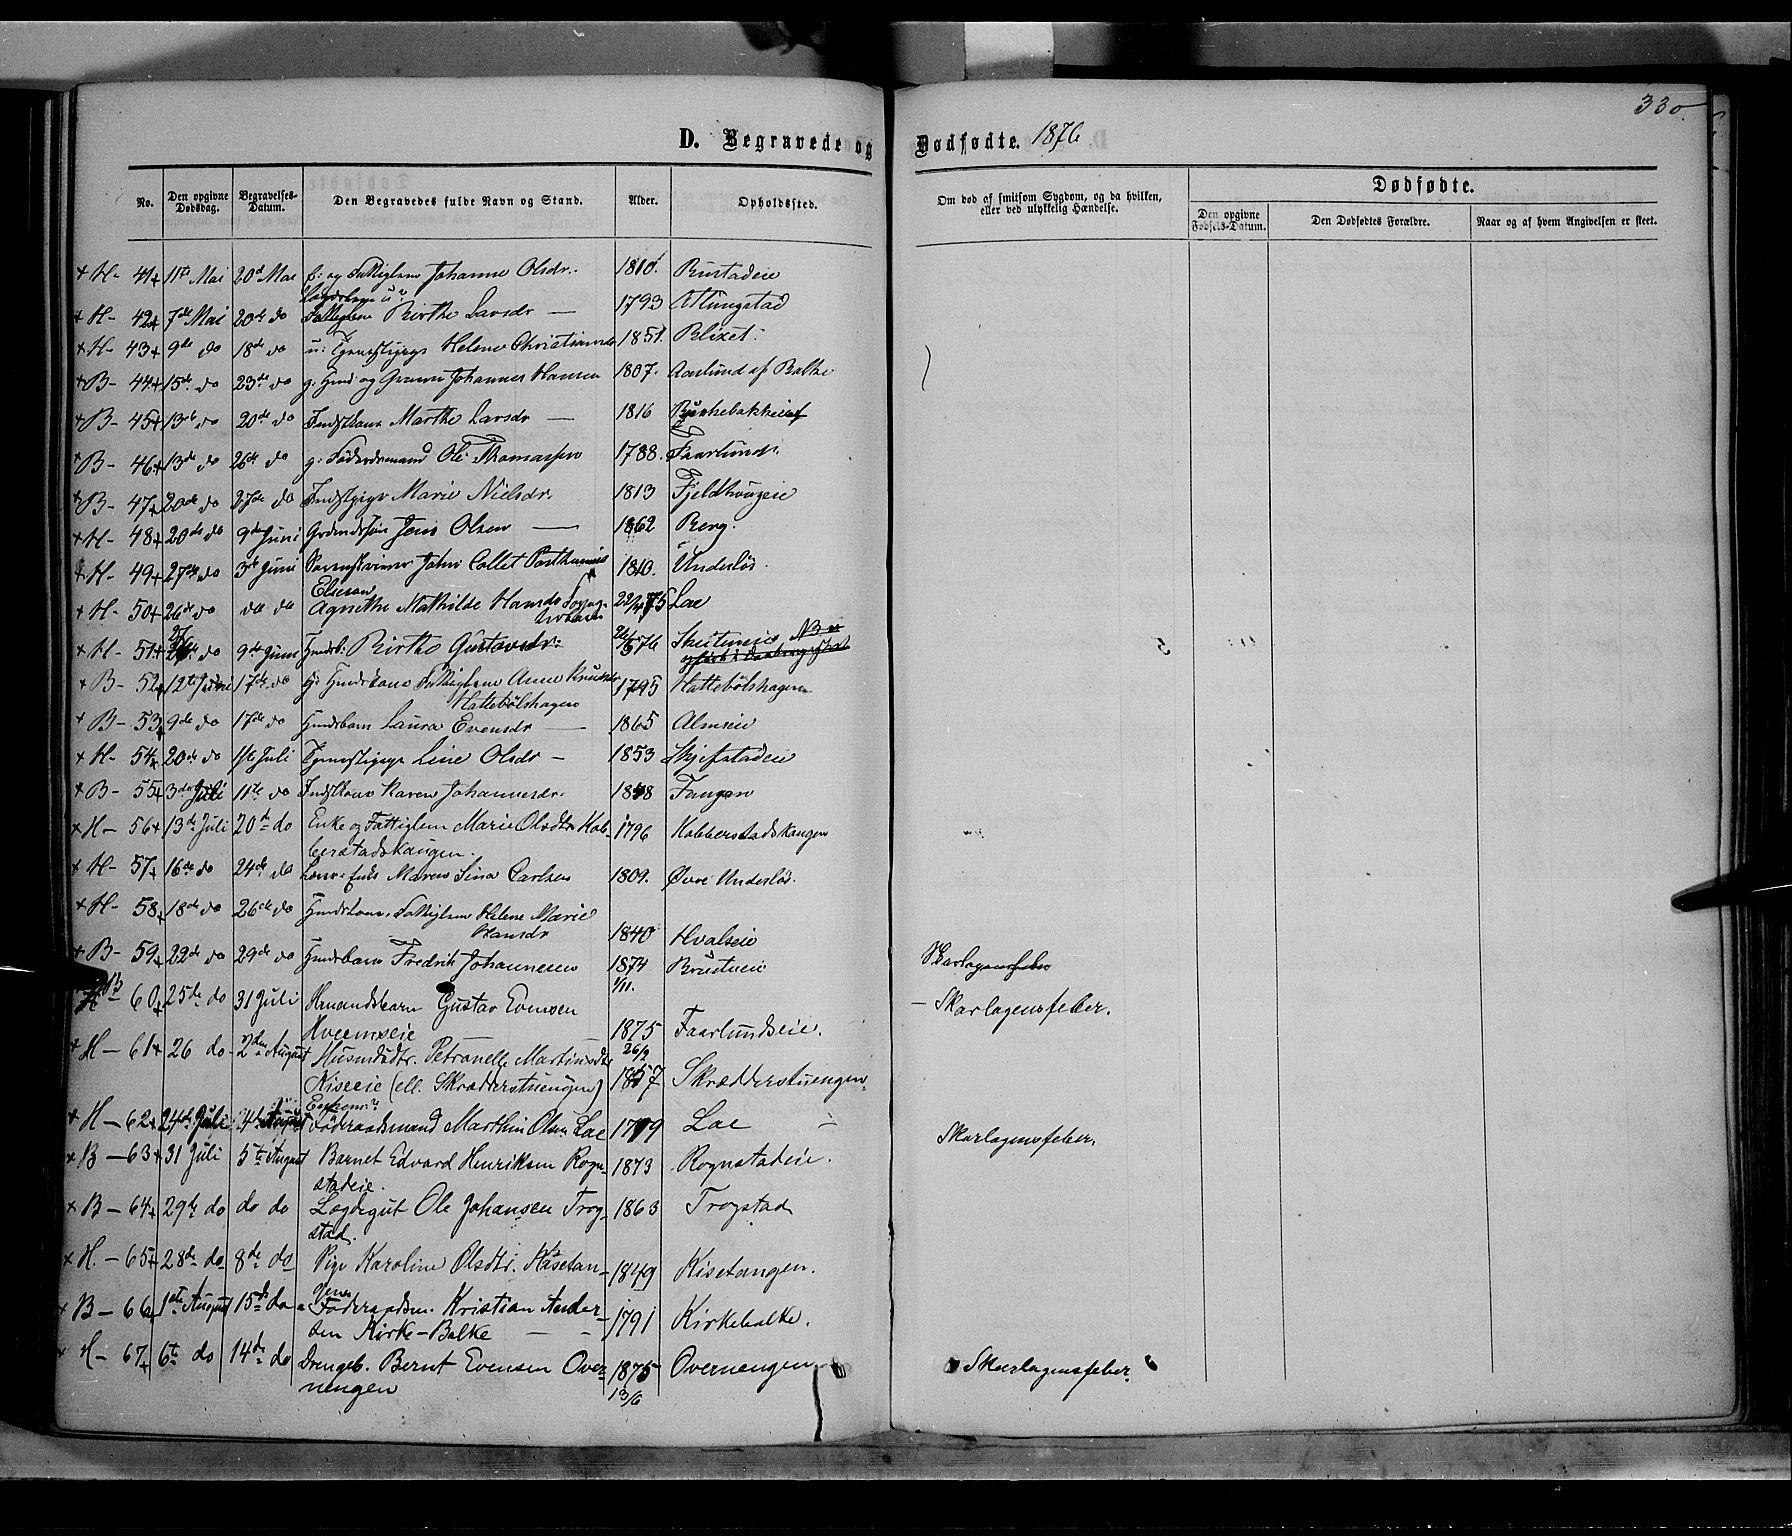 330.
D. Begravede og Dødfødte. 1876
No. Den opgivne Dødsdag. Begravelses-Datum. Den Begravedes fulde Navn og Stand. Alder. Opholdssted. Om død af smitsom Sygdom, og da hvilken, eller ved ulykkelig Hændelse. Dødfødte.
Den opgivne Fødsels-Datum. Den Dødfødtes Forældre. Naar og af hvem Angivelsen er skeet.
+ H- 41+ 11te Mai 20d Mai E: og Fattiglem Johanne Olsdr. 1810. Rustadeie
+ H- 42+ 7de Mai 20de do Fattiglem Birthe Larsdr — 1793 Atlungstad
+ H- 43+ 9de do 18de do u: Tjenestpige Helene Christiansdr 1851. Blixet.
+ B- 44+ 15de do 23de do g: Johannes Hansen 1807. Aarlund af Balke
+ B- 45+ 13de do 20de do Indstkone Marthe Larsdr — 1816
+ B- 46+ 13de do 26de do g: Føderdsmand Ole Thomassen 1788. Faarlund
+ B- 47+ 20de do 27de do Indstpige Marie Nielsdr. 1813 Fjeldhougeie
+ H- 48+ 20de do 9de Juni Grdmdssøn Jens Olsen — 1862 Berg.
+ H- 49+ 27de do 3de Juni John Collet Posthumus 1810. Underlös.
Elieson
+ H- 50+ 26de do do do Agnethe Mathilde Hansdr 22/4 75 Lae
+ H- 51+ do 9de Juni Husmb: Birthe Gustavsdr: 26/5 76
+ B- 52+ 12te Juni 17de do Hmdskone Fattiglem Anne Knudsdr 1795 Hattebölshagen
Hattebölshagen
+ B- 53+ 9de do 17de do Hmdsbarn Laura Evensdr — 1865 Almseie
+ H- 54+ 20de do 1ste Juli Tjenestpige Line Olsdr — 1853 Skjefstadeie
+ B- 55+ 3de Juli 11te do Indstkone Karen Johannesdr. 1848 Fangen
+ H- 56+ 13de Juli 20de do Enke og Fattiglem Marie Olsdtr Kob- 1796 Kobberstadskaugen
berstadskaugen.
+ H- 57+ 16de do 24de do Enke Maren Sina Carlsen 1809. Øvre Underlös.
+ H- 58+ 18de do 26de do Hmdskone, Fattiglem Helene Marie
Hansdr 1840 Hvalseie
+ B- 59+ 22de do 29de do Hmdsbarn Fredrik Johannesen 1874 Skarlagensfeber
+ B- 60+ 25de do 31 Juli Hmandsbarn Gustav Evensen 1/11. — Skarlagensfeber.
Hveemseie 1875 Faarlundseie.
+ H- 61+ 26 do 2den August Husmdsdtr. Petronelle Martinsdtr 26/2
Kiseeie (ell. Skrædderstuengen) 1857 Skrædderstuengen
+ H- 62+ 24de Juli 4de August Føderaadsmand Marthin Olsen Lae 1779 Lae
+ B- 63+ 31 Juli 5te August Barnet Edvard Henriksen Rogn- 1873 Rognstadeie. Skarlagensfeber,
stadeie.
+ B- 64+ 29de do do do Lægdegut Ole Johansen Trog- 1863 Trogstad
stad.
+ H- 65+ 28de do 8de do Pige Karoline Olsdtr. Kisetan- 1849 Kisetangen.
gen
+ B- 66+ 1ste August 15de do Føderaadsm. Kristian Ander-
sen Kirke-Balke — 1791 Kirkebalke.
+ H- 67+ 6te do 14de do Drengeb. Bernt Evensen Over- 1875 Overnengen Skarlagensfeber.
nengen 13/6